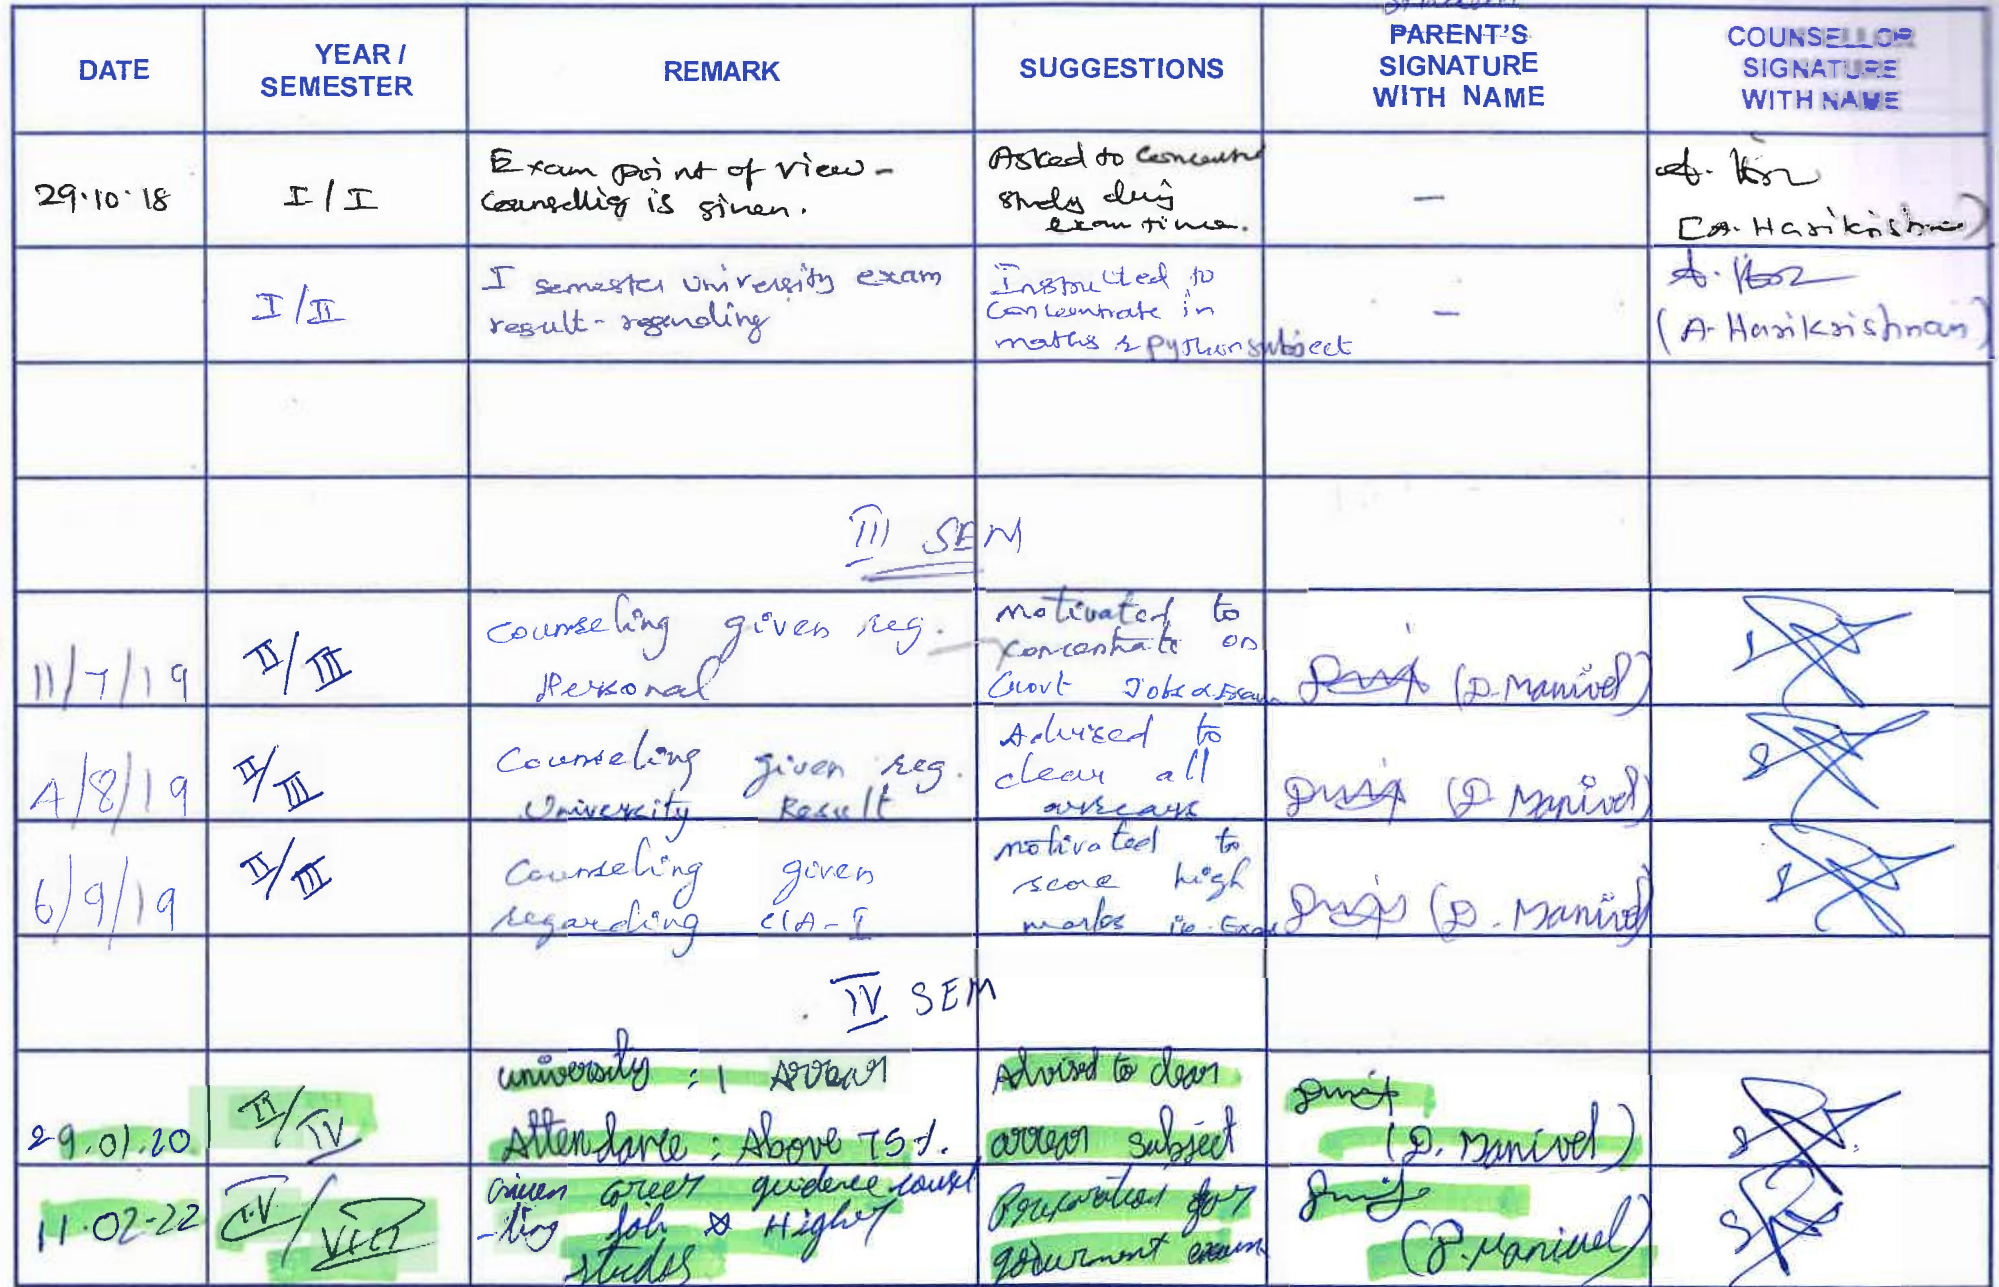 DATE
YEAR /
SEMESTER
REMARK
SUGGESTIONS
PARENT'S
SIGNATURE
WITH NAME
COUNSELLOR
SIGNATURE
WITH NAME
29.10.18
I/I
Exam point of view -
Counselling is given.
Asked to
study
exam time.
-
(A. Harikrishnan)
I/II
I semester University exam
result - regarding
Instructed to
Concentrate in
maths & python subject
-
(A. Harikrishnan)
III SEM
11/7/19
II/III
Counseling given reg.
Personal
motivated to
concentrate on
Govt Jobs & Exam
(D. Manivel)
4/8/19
II/III
Counseling given reg.
University Result
Advised to
clear all
arrears
(D. Manivel)
6/9/19
II/III
Counseling given
regarding CIA-I
motivated to
score high
marks in Exam
(D. Manivel)
IV SEM
29.01.20
II/IV
university : 1 Arrear
Attendance : Above 75%.
Advised to clear
arrear subject
(D. Manivel)
11.02-22
IV/VIII
Given career guidence counsel
-ling job & Higher
studes
Preparation for
government exam
(D. Manivel)